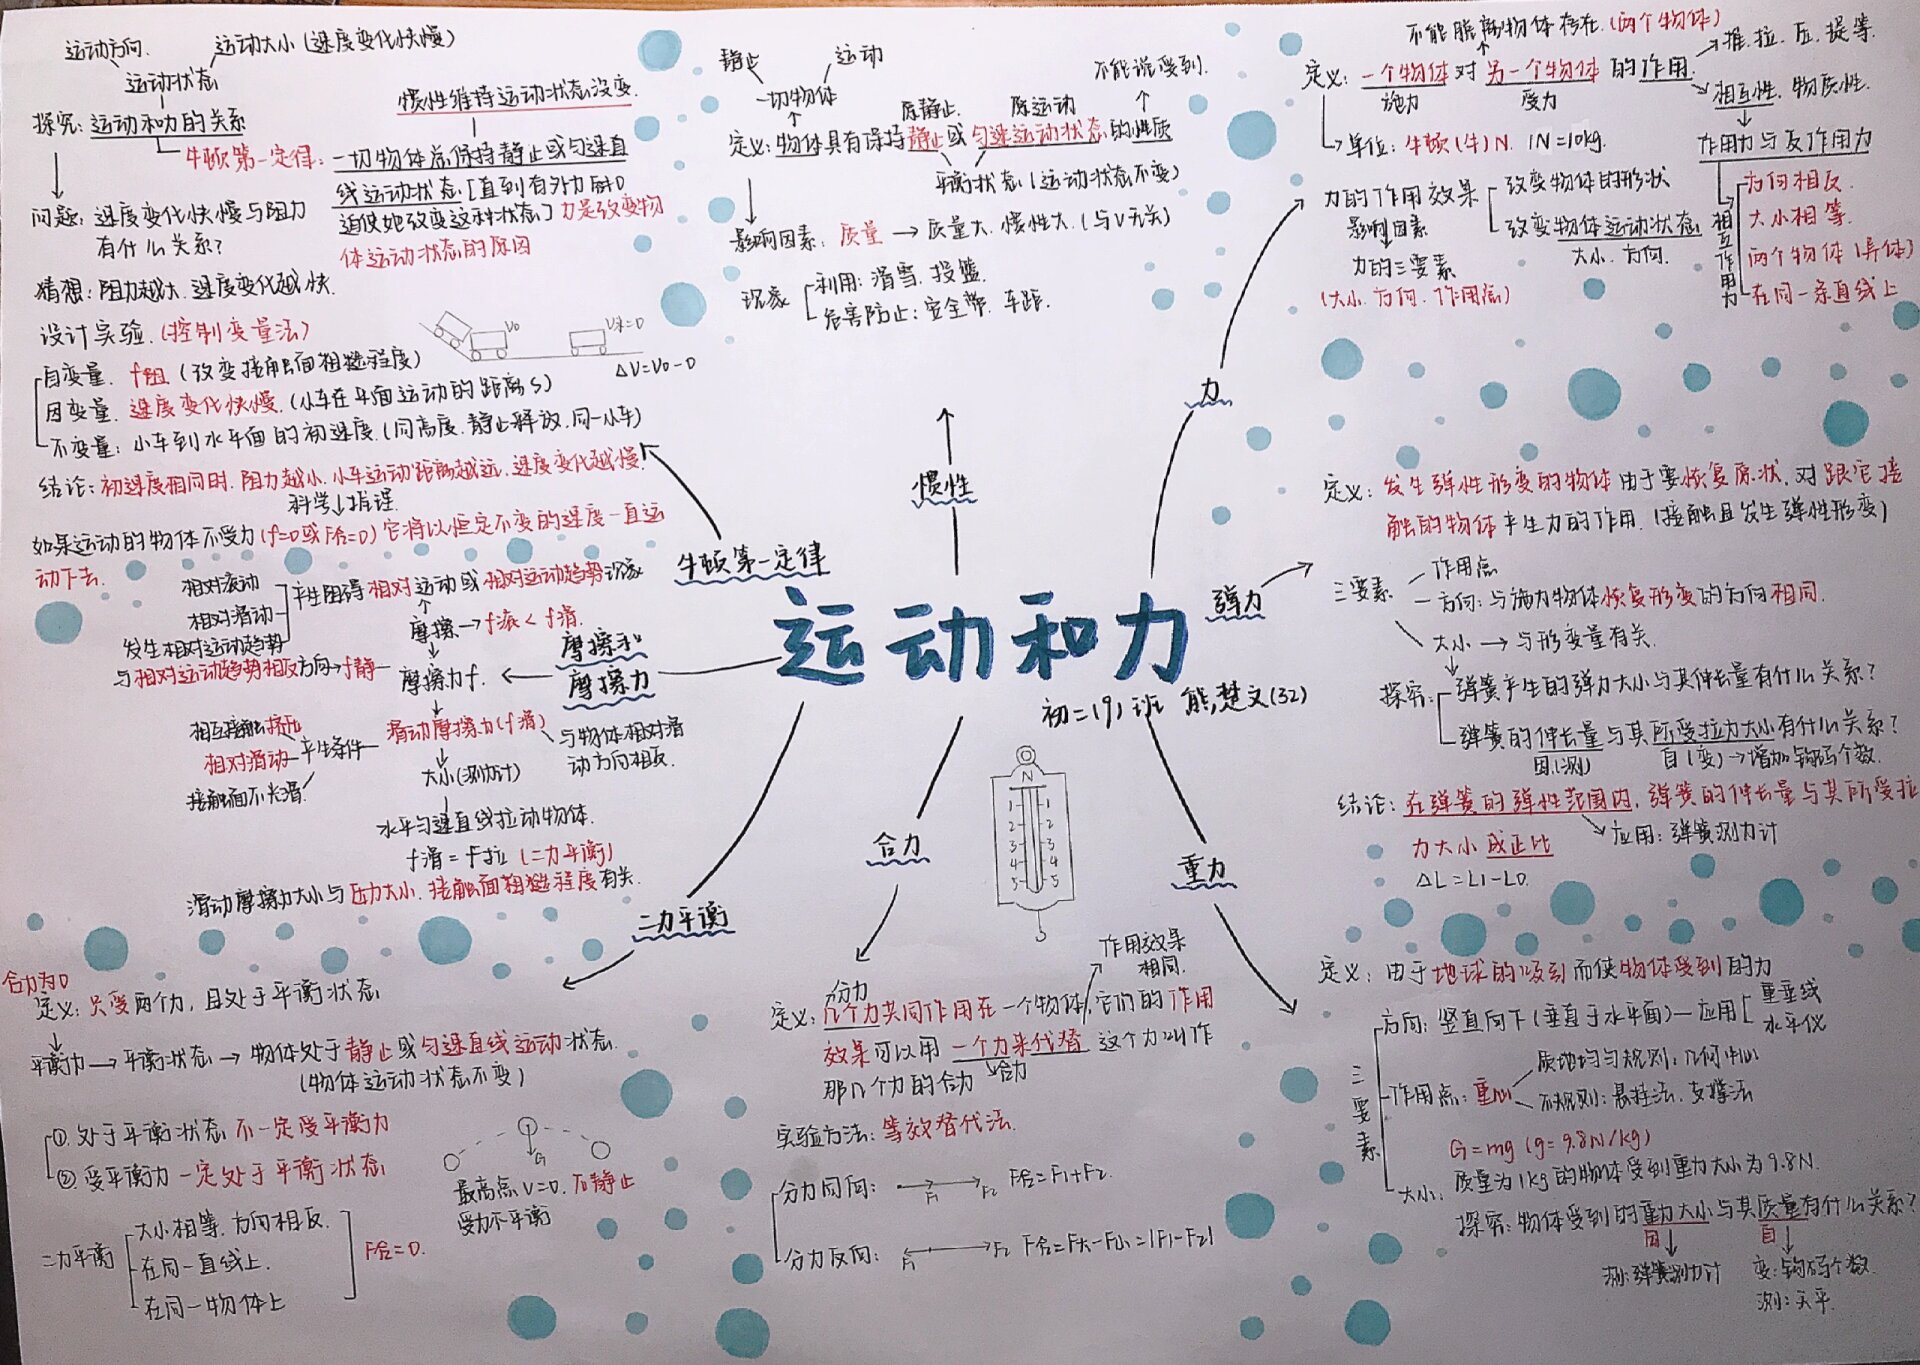 运动方向
运动大小(速度变化快慢)
运动状态
探究:运动和力的关系
惯性维持运动状态没变.
牛顿第一定律:一切物体总保持静止或匀速直
线运动状态[直到有外力对它
迫使她改变这种状态]力是改变物
体运动状态的原因
问题:速度变化快慢与阻力
有什么关系?
猜想:阻力越大.速度变化越快.
设计实验.(控制变量法)
V0
V末=0
△V=V0-0
自变量.f阻(改变接触面粗糙程度)
因变量.速度变化快慢.(小车在平面运动的距离S)
不变量:小车到水平面的初速度.(同高度.静止释放.同一小车)
结论:初速度相同时.阻力越小.小车运动距离越远.速度变化越慢.
科学推理.
如果运动的物体不受力(f=0或F合=0)它将以恒定不变的速度一直运
动下去.
牛顿第一定律
静止
运动
一切物体
原静止.
原运动
不能说受到.
定义:物体具有保持静止或匀速运动状态的性质
平衡状态(运动状态不变)
影响因素:质量→质量大.惯性大.(与V无关)
现象
利用:滑雪.投篮.
危害防止:安全带.车距.
惯性
不能脱离物体存在.(两个物体)
定义:一个物体对另一个物体的作用
推.拉.压.提等.
施力
受力
相互性.物质性.
单位:牛顿(牛)N. 1N=10kg.
作用力与反作用力
力的作用效果
改变物体的形状
改变物体运动状态
大小.方向.
影响因素
力的三要素
(大小.方向.作用点)
相互作用力
方向相反.
大小相等.
两个物体(异体)
在同一条直线上
力
定义:发生弹性形变的物体由于要恢复原状.对跟它接
触的物体产生力的作用.(接触且发生弹性形变)
弹力
三要素
作用点
方向:与施力物体恢复形变的方向相同.
大小→与形变量有关.
探究:弹簧产生的弹力大小与其伸长量有什么关系?
弹簧的伸长量与其所受拉力大小有什么关系?
因(测)
自(变)→增加钩码个数.
结论:在弹簧的弹性范围内,弹簧的伸长量与其所受拉
力大小成正比
应用:弹簧测力计
△L=L1-L0.
相对滚动
相对滑动
发生相对运动趋势
产生阻碍相对运动或相对运动趋势现象
摩擦→f滚<f滑.
与相对运动趋势相反方向→f静
摩擦力f.
摩擦和
摩擦力
相互接触挤压
相对滑动
接触面不光滑.
产生条件
滑动摩擦力(f滑)
与物体相对滑
动方向相反.
大小(测力计)
水平匀速直线拉动物体.
f滑=F拉(二力平衡)
滑动摩擦力大小与压力大小.接触面粗糙程度有关.
运动和力
初二(9)班 熊楚文(32)
N
1 1
2 2
3 3
4 4
5 5
合力
重力
二力平衡
合力为0
定义:只受两个力,且处于平衡状态
平衡力→平衡状态→物体处于静止或匀速直线运动状态.
(物体运动状态不变)
①.处于平衡状态不一定受平衡力
②.受平衡力一定处于平衡状态
G
最高点V=0.不静止
受力不平衡
二力平衡
大小相等.方向相反.
在同一直线上.
在同一物体上
F合=0.
作用效果
相同.
分力
定义:几个力共同作用在一个物体,它们的作用
效果可以用一个力来代替 这个力叫作
那几个力的合力
合力
实验方法:等效替代法.
分力同向: F1 F2 F合=F1+F2.
分力反向: F1 F2 F合=F大-F小=|F1-F2|
定义:由于地球的吸引而使物体受到的力
三要素
方向:竖直向下(垂直于水平面)—应用
重垂线
水平仪
作用点:重心
质地均匀规则:几何中心
不规则:悬挂法.支撑法
G=mg(g=9.8N/kg)
大小.质量为1kg的物体受到重力大小为9.8N.
探究:物体受到的重力大小与其质量有什么关系?
因
自
测:弹簧测力计
变:钩码个数.
测:天平.